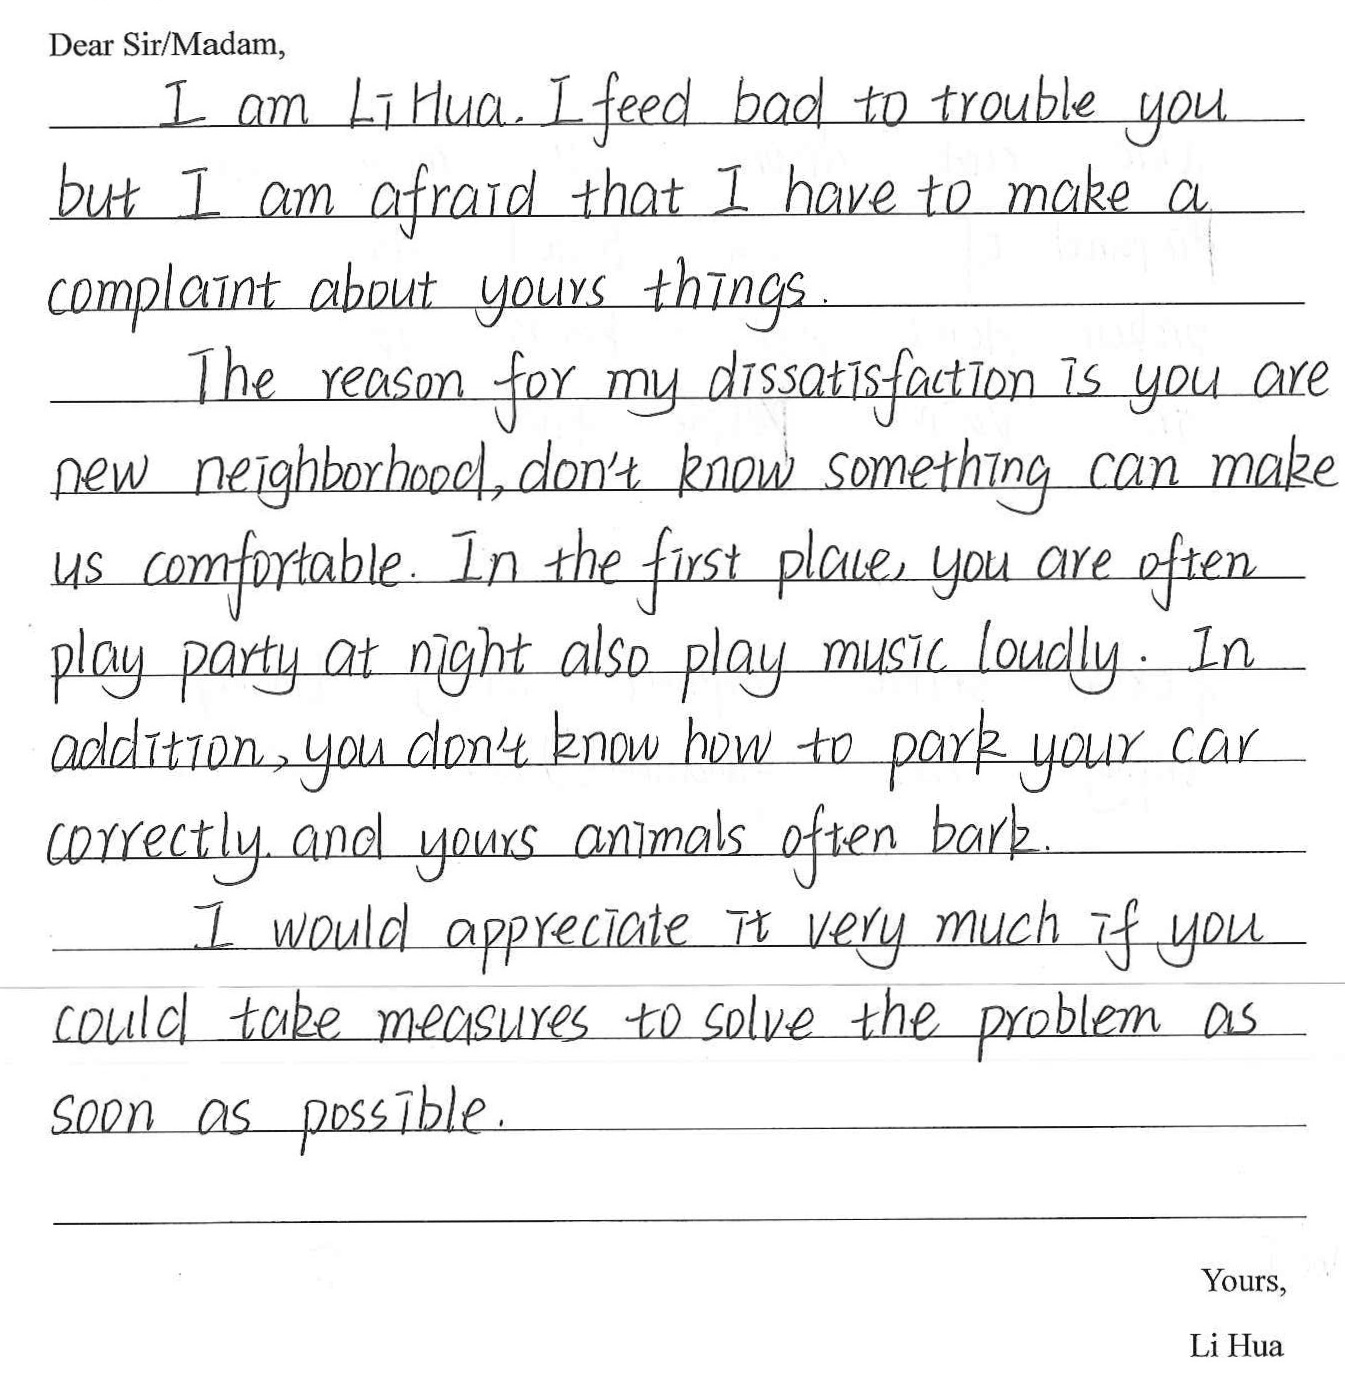 Dear Sir/Madam,
I am Li Hua. I feed bad to trouble you
but I am afraid that I have to make a
complaint about yours things.
The reason for my dissatisfaction is you are
new neighborhood, don't know something can make
us comfortable. In the first place, you are often
play party at night also play music loudly. In
addition, you don't know how to park your car
correctly. and yours animals often bark.
I would appreciate it very much if you
could take measures to solve the problem as
soon as possible.
Yours,
Li Hua